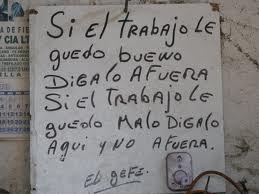 Y CIA LT
SI EL TRABAJO LE
quedo bueno
DIGALO AFUERA
SI EL TRABAJO LE
quedo MALO DIGALO
AQUI y NO AFUERA.
EL GEFE.